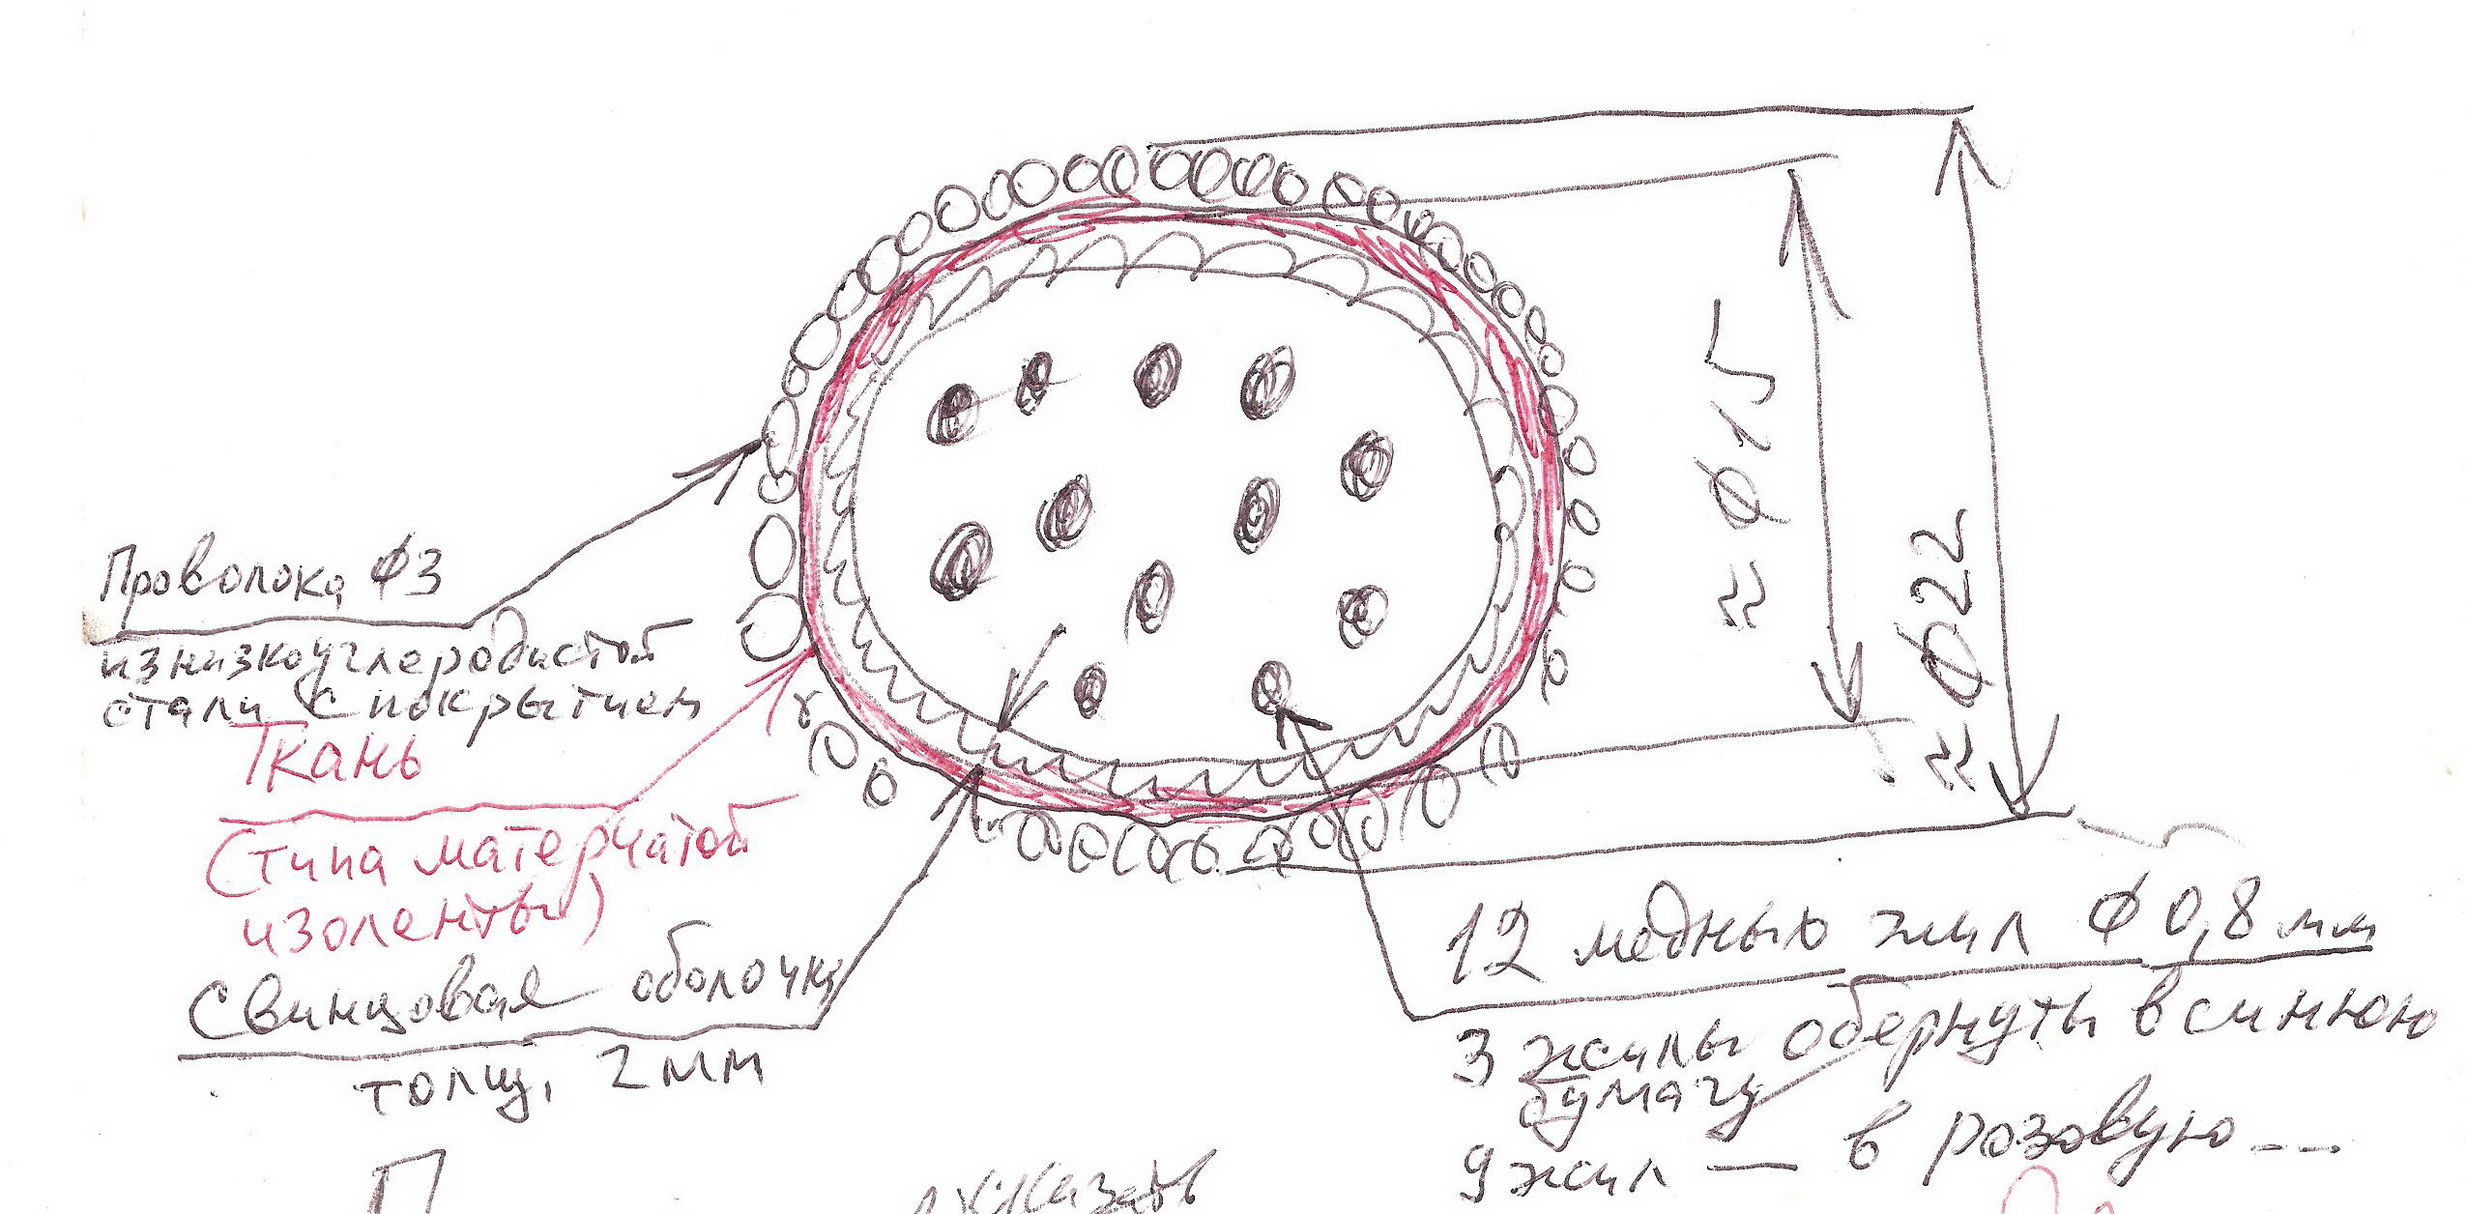 ≈ φ15
≈ φ22
Проволока φ3
из низкоуглеродистой
стали с покрытием
Ткань
(типа матерчатой
изоленты)
Свинцовая оболочка
толщ, 2мм
12 медных жил φ 0,8 мм
3 жилы обернуты в синюю
бумагу
9 жил — в розовую ---